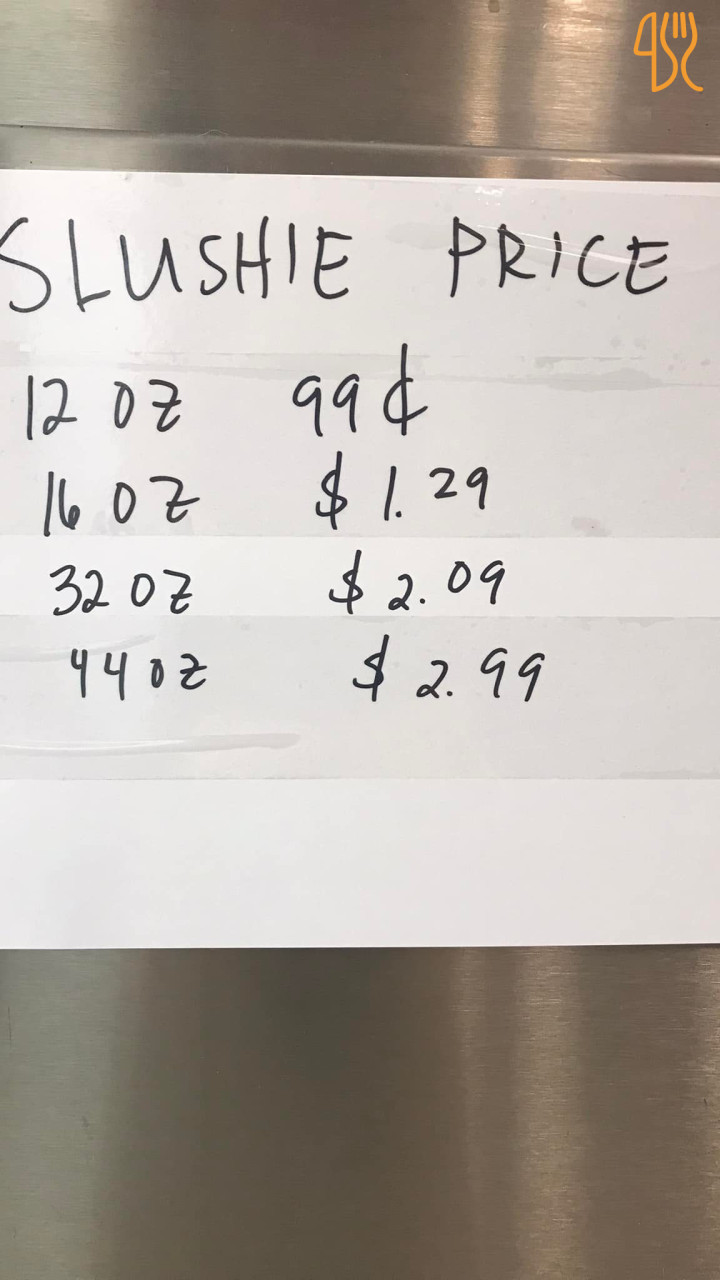 SLUSHIE PRICE
12 OZ 99¢
16 OZ $1.29
32 OZ $2.09
44 OZ $2.99